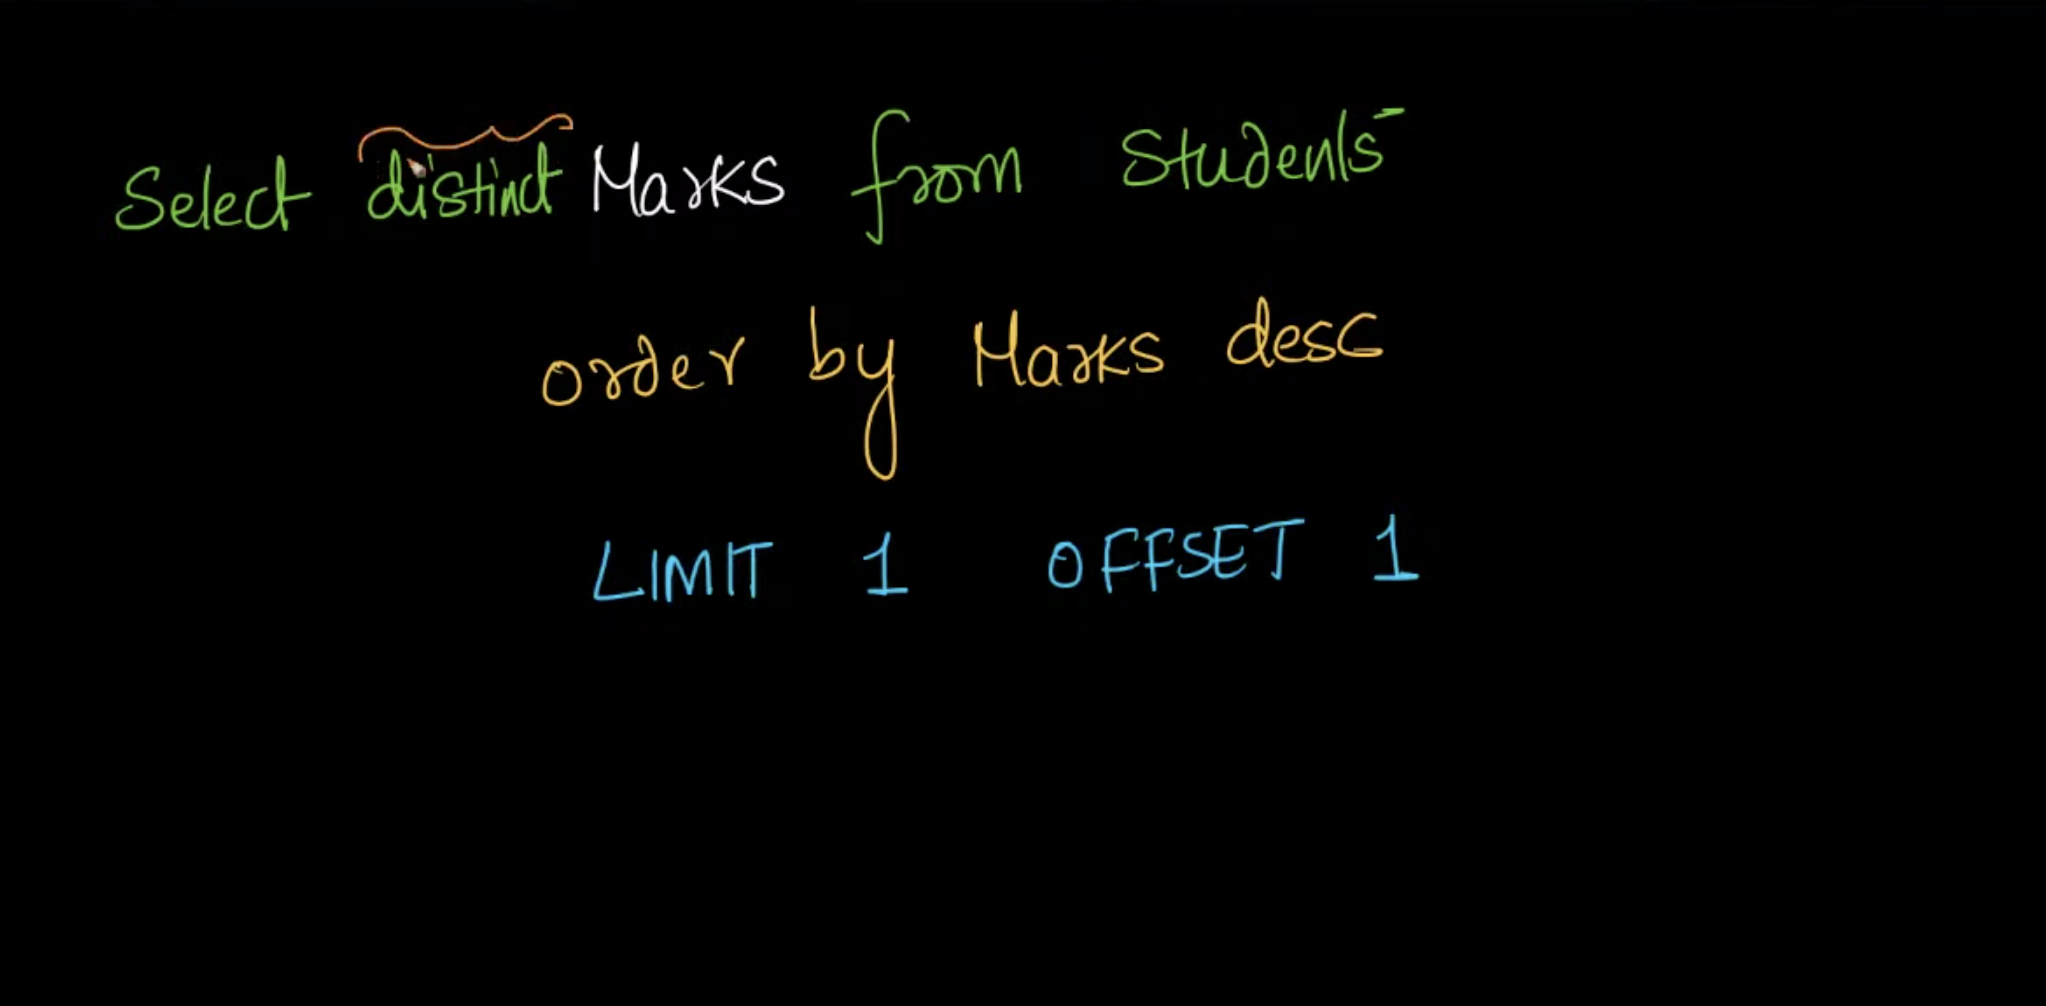 Select distinct Marks from Students
order by Marks desc
LIMIT 1 OFFSET 1